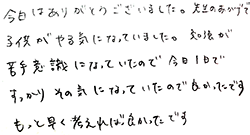 今日はありがとうございました。先生のおかげで
子供がやる気になっていました。勉強が
苦手意識になっていたので今日1日で
すっかりその気になっていたので良かったです
もっと早く考えれば良かったです